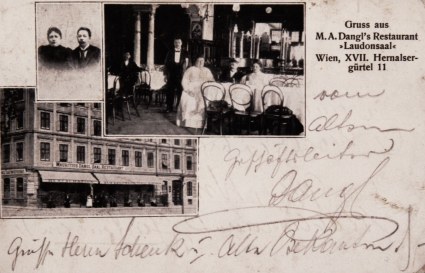 Gruss aus
M. A. Dangl's Restaurant
»Laudonsaal«
Wien, XVII. Hernalser-
gürtel 11
vom
alten
Geschäftsleiter
Dangl
Grüße Herrn Schenk